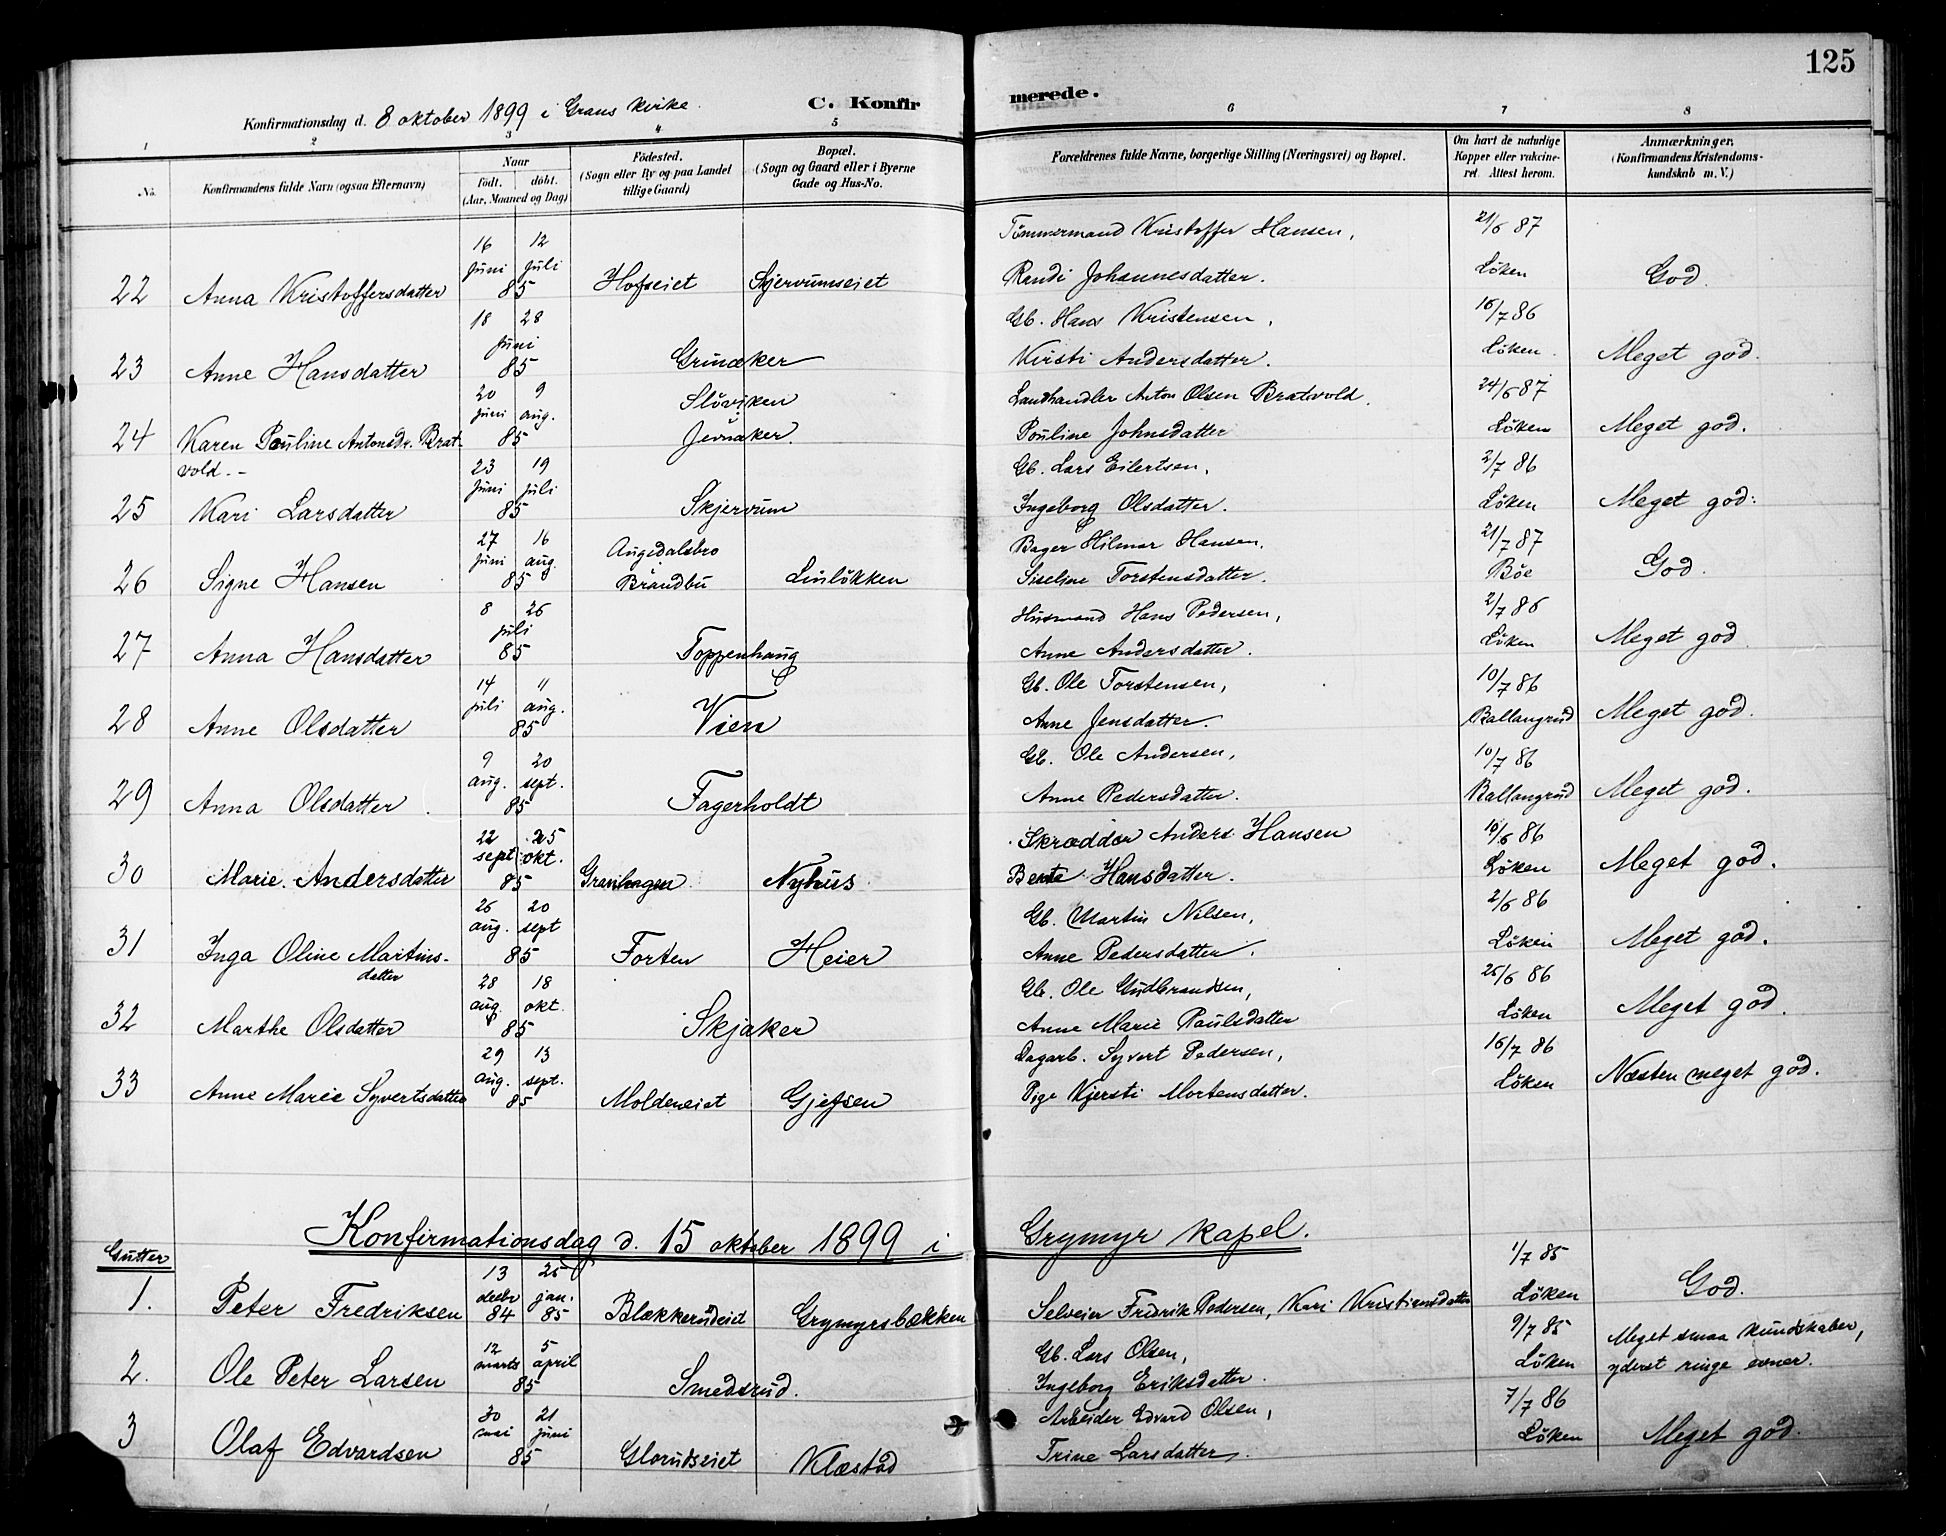 125
Konfirmationsdag d. 8 oktober 1899 i Grans Kirke.
C. Konfirmerede.
1 2 3 4 5 6 7 8
No. Konfirmandens fulde Navn (ogsaa Efternavn) Naar født. døbt. (Aar, Maaned og Dag) Fødested. (Sogn eller By og paa Landet tillige Gaard) Bopæl. (Sogn og Gaard eller i Byerne Gade og Hus-No. Forældrenes fulde Navne, borgerlige Stilling (Næringsvei) og Bopæl. Om havt de naturlige Kopper eller vakcineret. Attest herom. Anmærkninger. (Konfirmandens Kristendomskundskab m. V.)
16 12 Tømmermand Kristoffer Hansen, 21/6 87
22 Anna Kristoffersdatter juni juli 85 Hofseiet Skjervumseiet Randi Johannesdatter. Løken God.
18 28 Gb. Hans Kristensen, 16/7 86
23 Anne Hansdatter juni 85 Grinaker Kirsti Andersdatter. Løken. Meget god.
20 9 Sløviken Landhandler Anton Olsen Bratvold. 24/6 87
24 Karen Pauline Antonsdr. Brat- juni aug. 85 Jevnaker. Pouline Johnsdatter Løken Meget god.
vold. - 23 19 Gb. Lars Eilertsen, 2/7 86
25 Kari Larsdatter juni juli 85 Skjervum Ingeborg Olsdatter. Løken Meget god:
27 16 Augedalsbro Bager Hilmar Hansen, 21/7 87
26 Signe Hansen juni aug. 85 Brandbu Linløkken Siseline Torstensdatter. Bøe God.
8 26 Husmand Hans Pedersen, 2/7 86
27 Anna Hansdatter juli 85 Toppenhaug Anne Andersdatter. Løken Meget god
14 11 Gb. Ole Torstensen, 10/7 86
28 Anne Olsdatter juli aug. 85 Vien Anne Jensdatter. Ballangrud Meget god.
9 20 Gb. Ole Andersen, 10/7 86
29 Anna Olsdatter aug. sept. 85 Fagerholdt Anne Pedersdatter. Ballangrud Meget god.
22 25 Skrædder Anders Hansen 10/6 86
30 Marie Andersdatter sept. okt. 85 Granhagen Nyhus Berte Hansdatter. Løken Meget god.
26 20 Gb. Martin Nilsen, 2/6 86
31 Inga Oline Martins- aug. sept 85 Forten Heier Anne Pedersdatter. Løken Meget god.
datter 28 18 Gb. Ole Gudbrandsen, 25/6 86
32 Marthe Olsdatter aug. okt. 85 Skjaker Anne Marie Paulsdatter Løken Meget god.
29 13 Dagarb. Syvert Pedersen, 16/7 86
33 Anne Marie Syvertsdatter aug. sept. 85 Moldeneiet Gjefsen Pige Kjersti Mortensdatter. Løken Næsten meget god.
Konfirmationsdag d. 15 oktober 1899 i Grymyr kapel.
Gutter
13 25 1/7 85
1. Peter Fredriksen decbr 84 jan. 85 Blækkerudeiet Grymyrsbækken Selveier Fredrik Pedersen, Kari Kristiansdatter Løken God.
12 5 Gb. Lars Olsen, 9/7 85 Meget smaa kundskaber,
2. Ole Peter Larsen marts april 85 Smedsrud. Ingeborg Eriksdatter. Løken yderst ringe evner.
30 21 Arbeider Edvard Olsen, 7/7 86
3 Olaf Edvardsen mai juni 85 Glorudseiet Klæstad Trine Larsdatter. Løken Meget god.